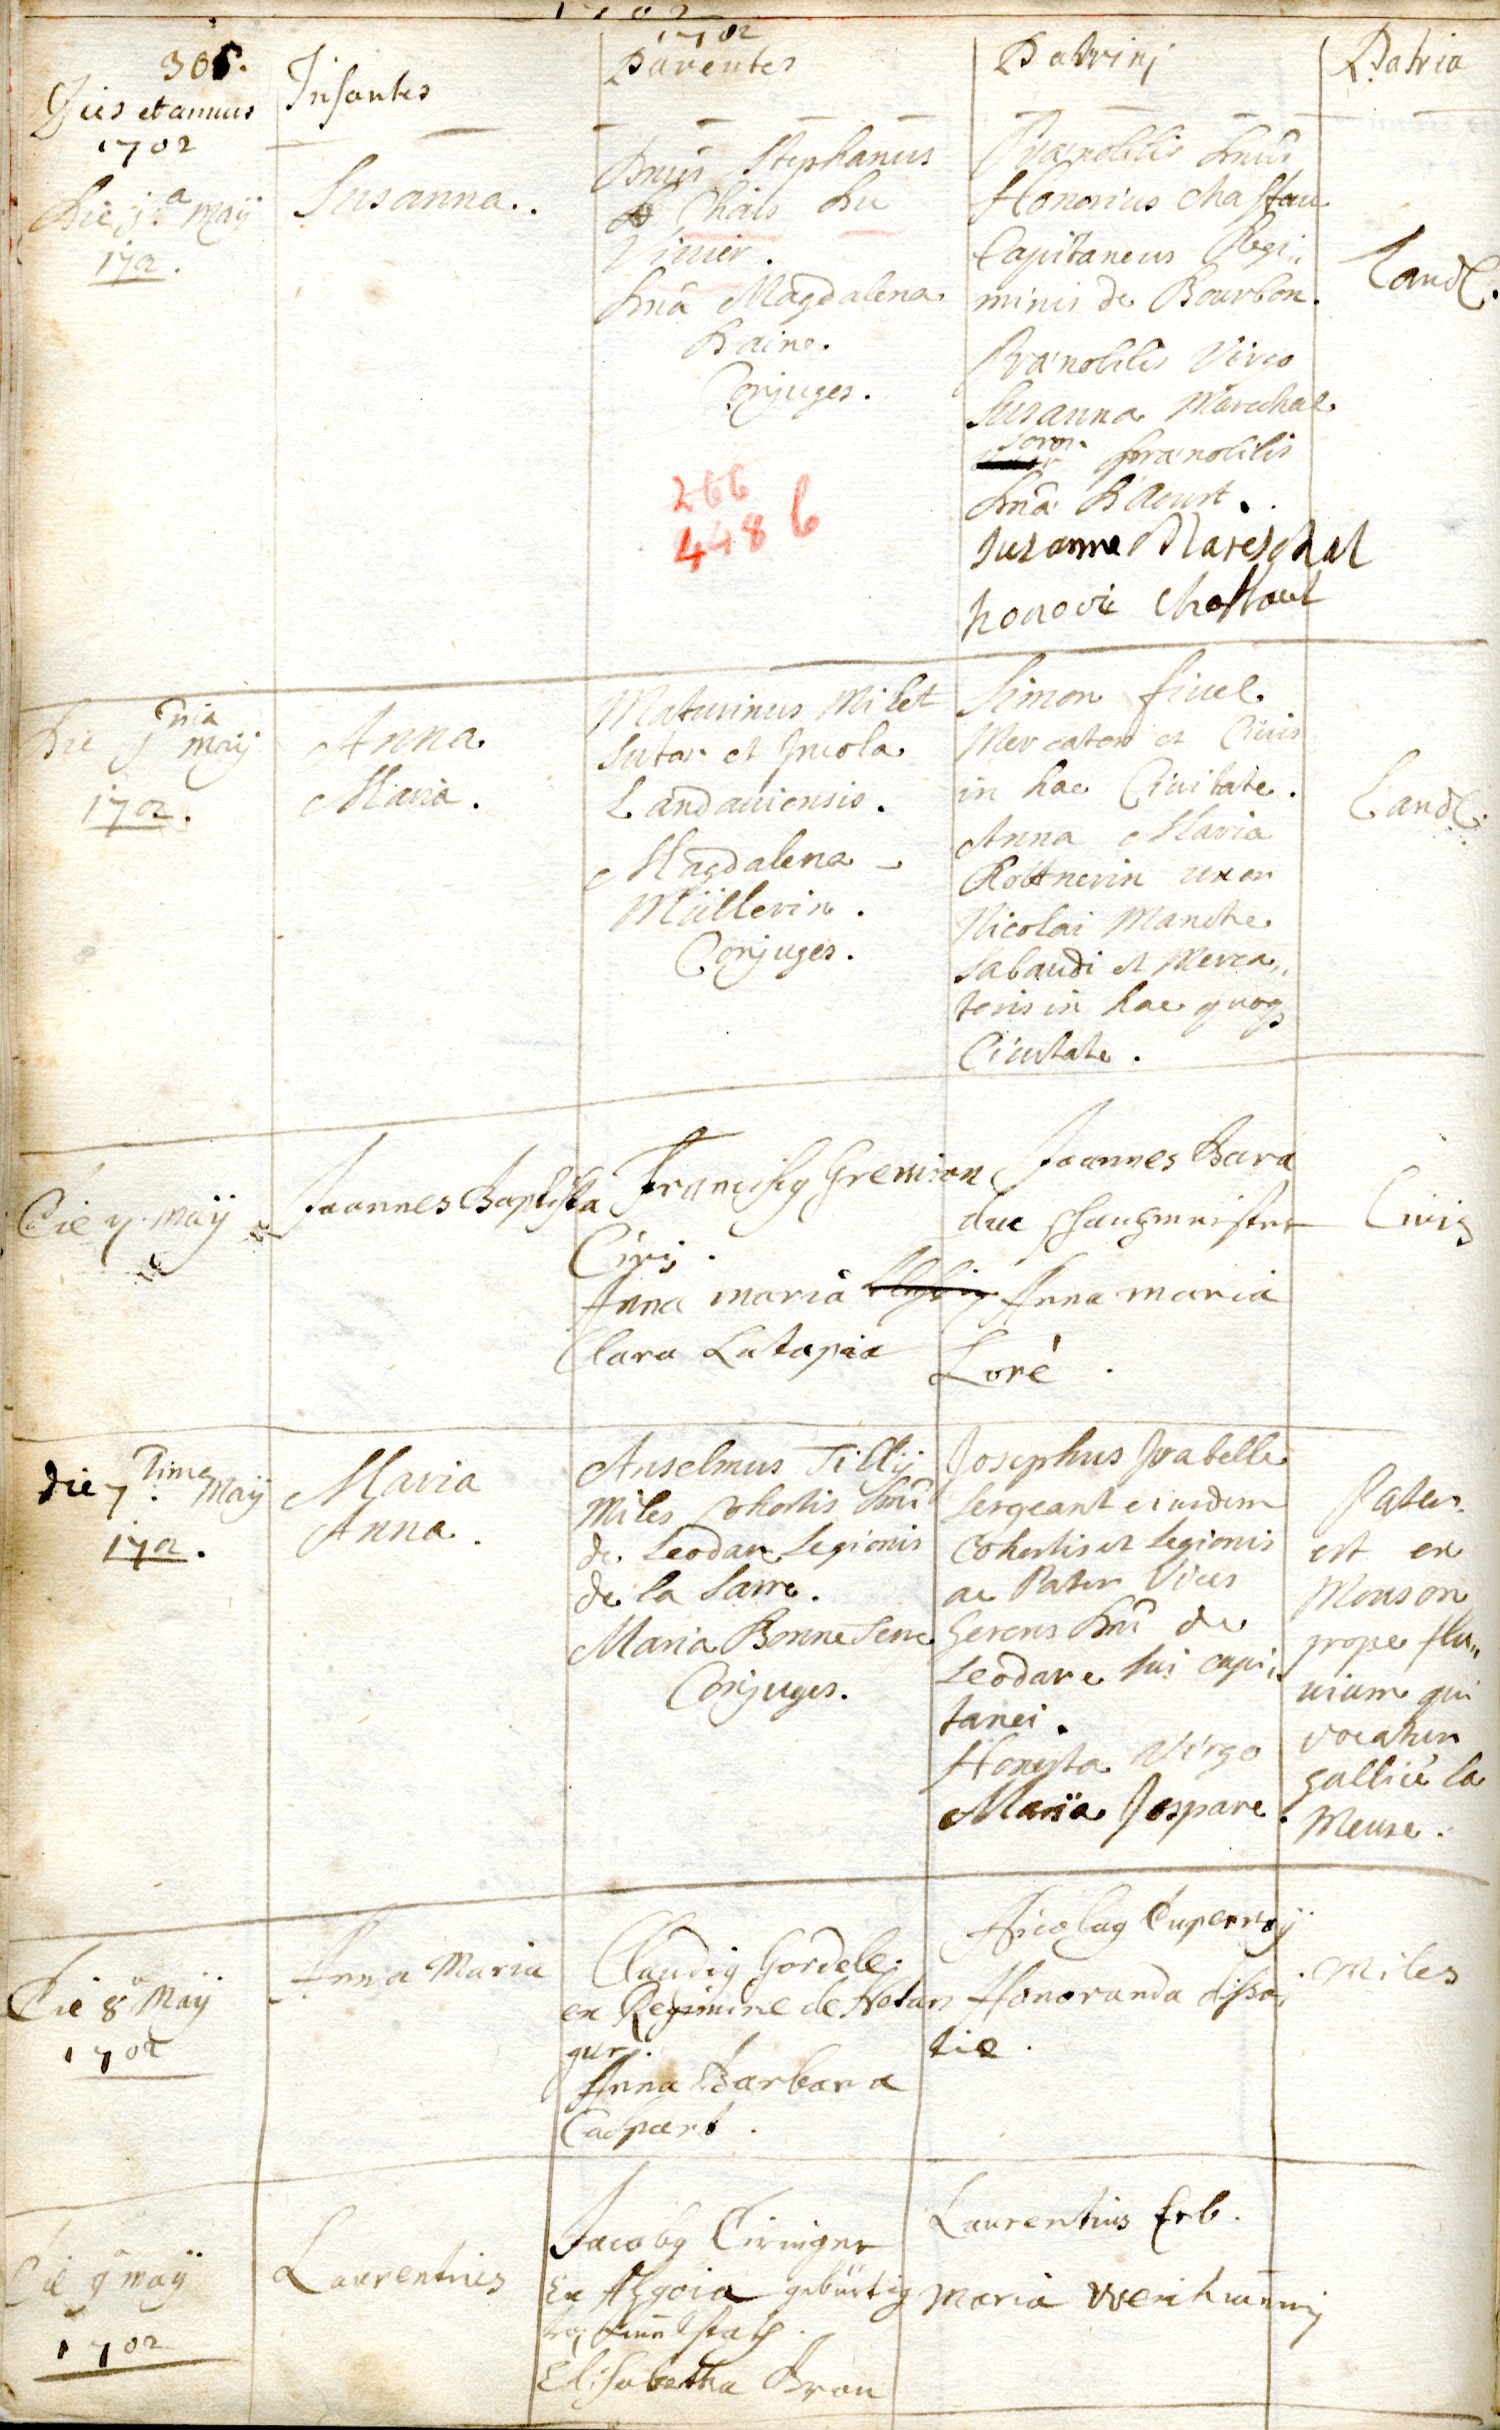 1702
305.
Dies et annus
1702
Infantes
Parentes
Patrini
Patria
Die j.a Maij
1702.
Susanna.
Dnus Stephanus
Chais Du
Vinier.
Dna Magdalena
Baine.
Conjuges.
266
448 6
Praenobilis Dnus
Honorius Chastau
Capitaneus Regi,,
minis de Bourbon.
Praenobilis Virgo
Susanna Marechal
soror praenobilis
Dna D'Acurt.
Suzanne Mareschal
honore Chastaut
Land.
Die jma Maij
1702.
Anna
Maria.
Maturinus Milet
Sutor et Incola
Landaviensis.
Magdalena
Müllerin.
Conjuges.
Simon fivel
Mercator et Civis
in hac Civitate.
Anna Maria
Rottnerin uxor
Nicolai Manche
Sabaudi et Merca,,
toris in hac quoq
Civitate.
Land.
Die 7. Maij
Joannes Baptista
Franciscg Gremion
Civis.
Anna maria
Clara Latapia
Joannes Bara
duc
Anna maria
Loré.
Civis
die 7timo Maij
1702.
Maria
Anna.
Anselmus Tillij
Miles Cohortis Dni
de Leodare Legionis
de la Sarre.
Maria Bonne Sene
Conjuges.
Josephus Jrabelle
Sergeant eiusdem
Cohortis et Legionis
ac Pater Vices
Gerens Dni de
Leodare sui capi,,
tanei.
Honesta Virgo
Maria Jospare.
Pater
est ex
Mouson
prope flu,,
uium qui
vocatur
gallicé la
Meuse.
Die 8a Maij
1702
Anna Maria
Claudig Gordele
ex Regimine de
gurj.
Anna Barbara
Caspart.
Nicolag Cuperroÿ
Honoranda
tie.
Miles
Die 9a maij
1702
Laurentius
Jacobg Ciringer
Ex Algoia gebürtig
Elisabetha Bron
Laurentius Erb.
Maria